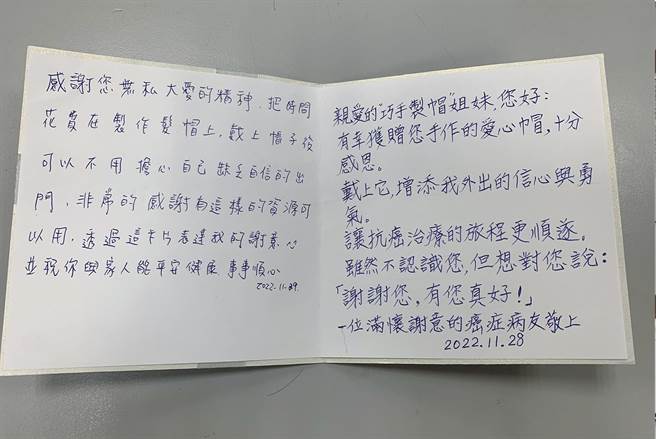 感謝您無私大愛的精神，把時間
花費在製作髮帽上，戴上帽子後
可以不用擔心自己缺乏自信的出
門，非常的感謝有這樣的資源可
以用，透過這卡片表達我的謝意心
並祝你與家人能平安健康 事事順心
2022.11.29
親愛的"巧手製帽"姐妹，您好：
有幸獲贈您手作的愛心巾帽，十分
感恩。
戴上它，增添我外出的信心與勇
氣。
讓抗癌治療的旅程更順遂。
雖然不認識您，但想對您說：
「謝謝您，有您真好！」
一位滿懷謝意的癌症病友敬上
2022.11.28